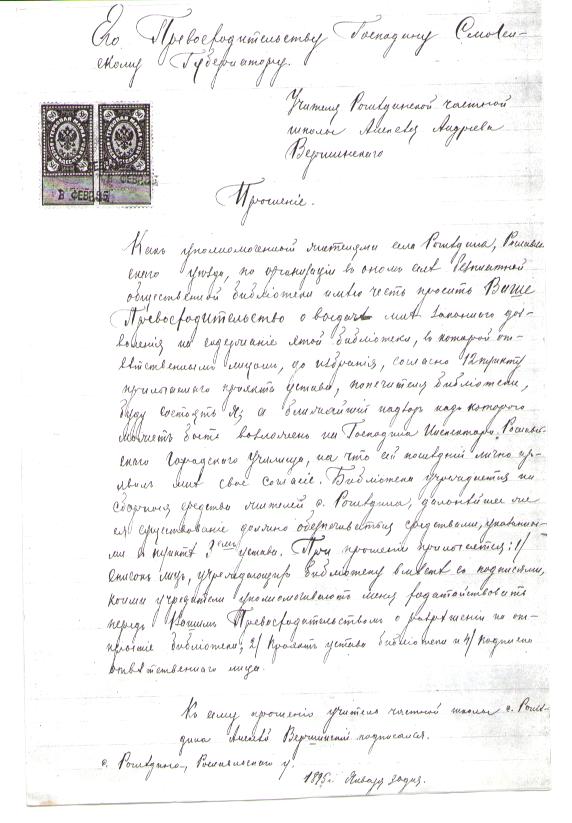 Его Превосходительству Господину Смолен-
скому Губернатору.
Учителя Рогнѣдинской частной
школы Алексѣя Андреева
Вершинскаго
Прошеніе.
Какъ уполномоченный жителями села Рогнѣдина, Рославль-
скаго уѣзда, по организаціи въ ономъ селѣ безплатной
общественной библіотеки имѣю честь просить Ваше
Превосходительство о выдачѣ мнѣ законнаго доз-
воленія на содержаніе этой библіотеки, въ которой от-
вѣтственнымъ лицомъ, до избранія, согласно 12 пункту
прилагаемаго проекта устава, попечителя библіотеки,
буду состоять я; а ближайшій надзоръ надъ которого
можетъ быть возложенъ на Господина Инспектора Рославль-
скаго Городского Училища, на что сей послѣдній лично из-
явилъ мнѣ свое согласіе. Библіотека учреждается на
сборныя средства жителей с. Рогнѣдина, дальнѣйшее же
ея существованіе должно обезпечиваться средствами, указанны-
ми въ пунктѣ 3емъ устава. При прошеніи прилагается: 1/
списокъ лицъ, учреждающихъ библіотеку вмѣстѣ съ подписями,
коими учредители уполномочиваютъ меня ходатайствовать
передъ Вашимъ Превосходительствомъ о разрѣшеніи на от-
крытіе библіотеки; 2/ Проэктъ устава библіотеки и 4/ подписка
отвѣтственнаго лица.
Къ сему прошенію учитель частной школы с. Рогнѣ-
дина Алексѣй Вершинскій подписался.
с. Рогнѣдино, Рославльскаго у.
1895 г. Января дня.